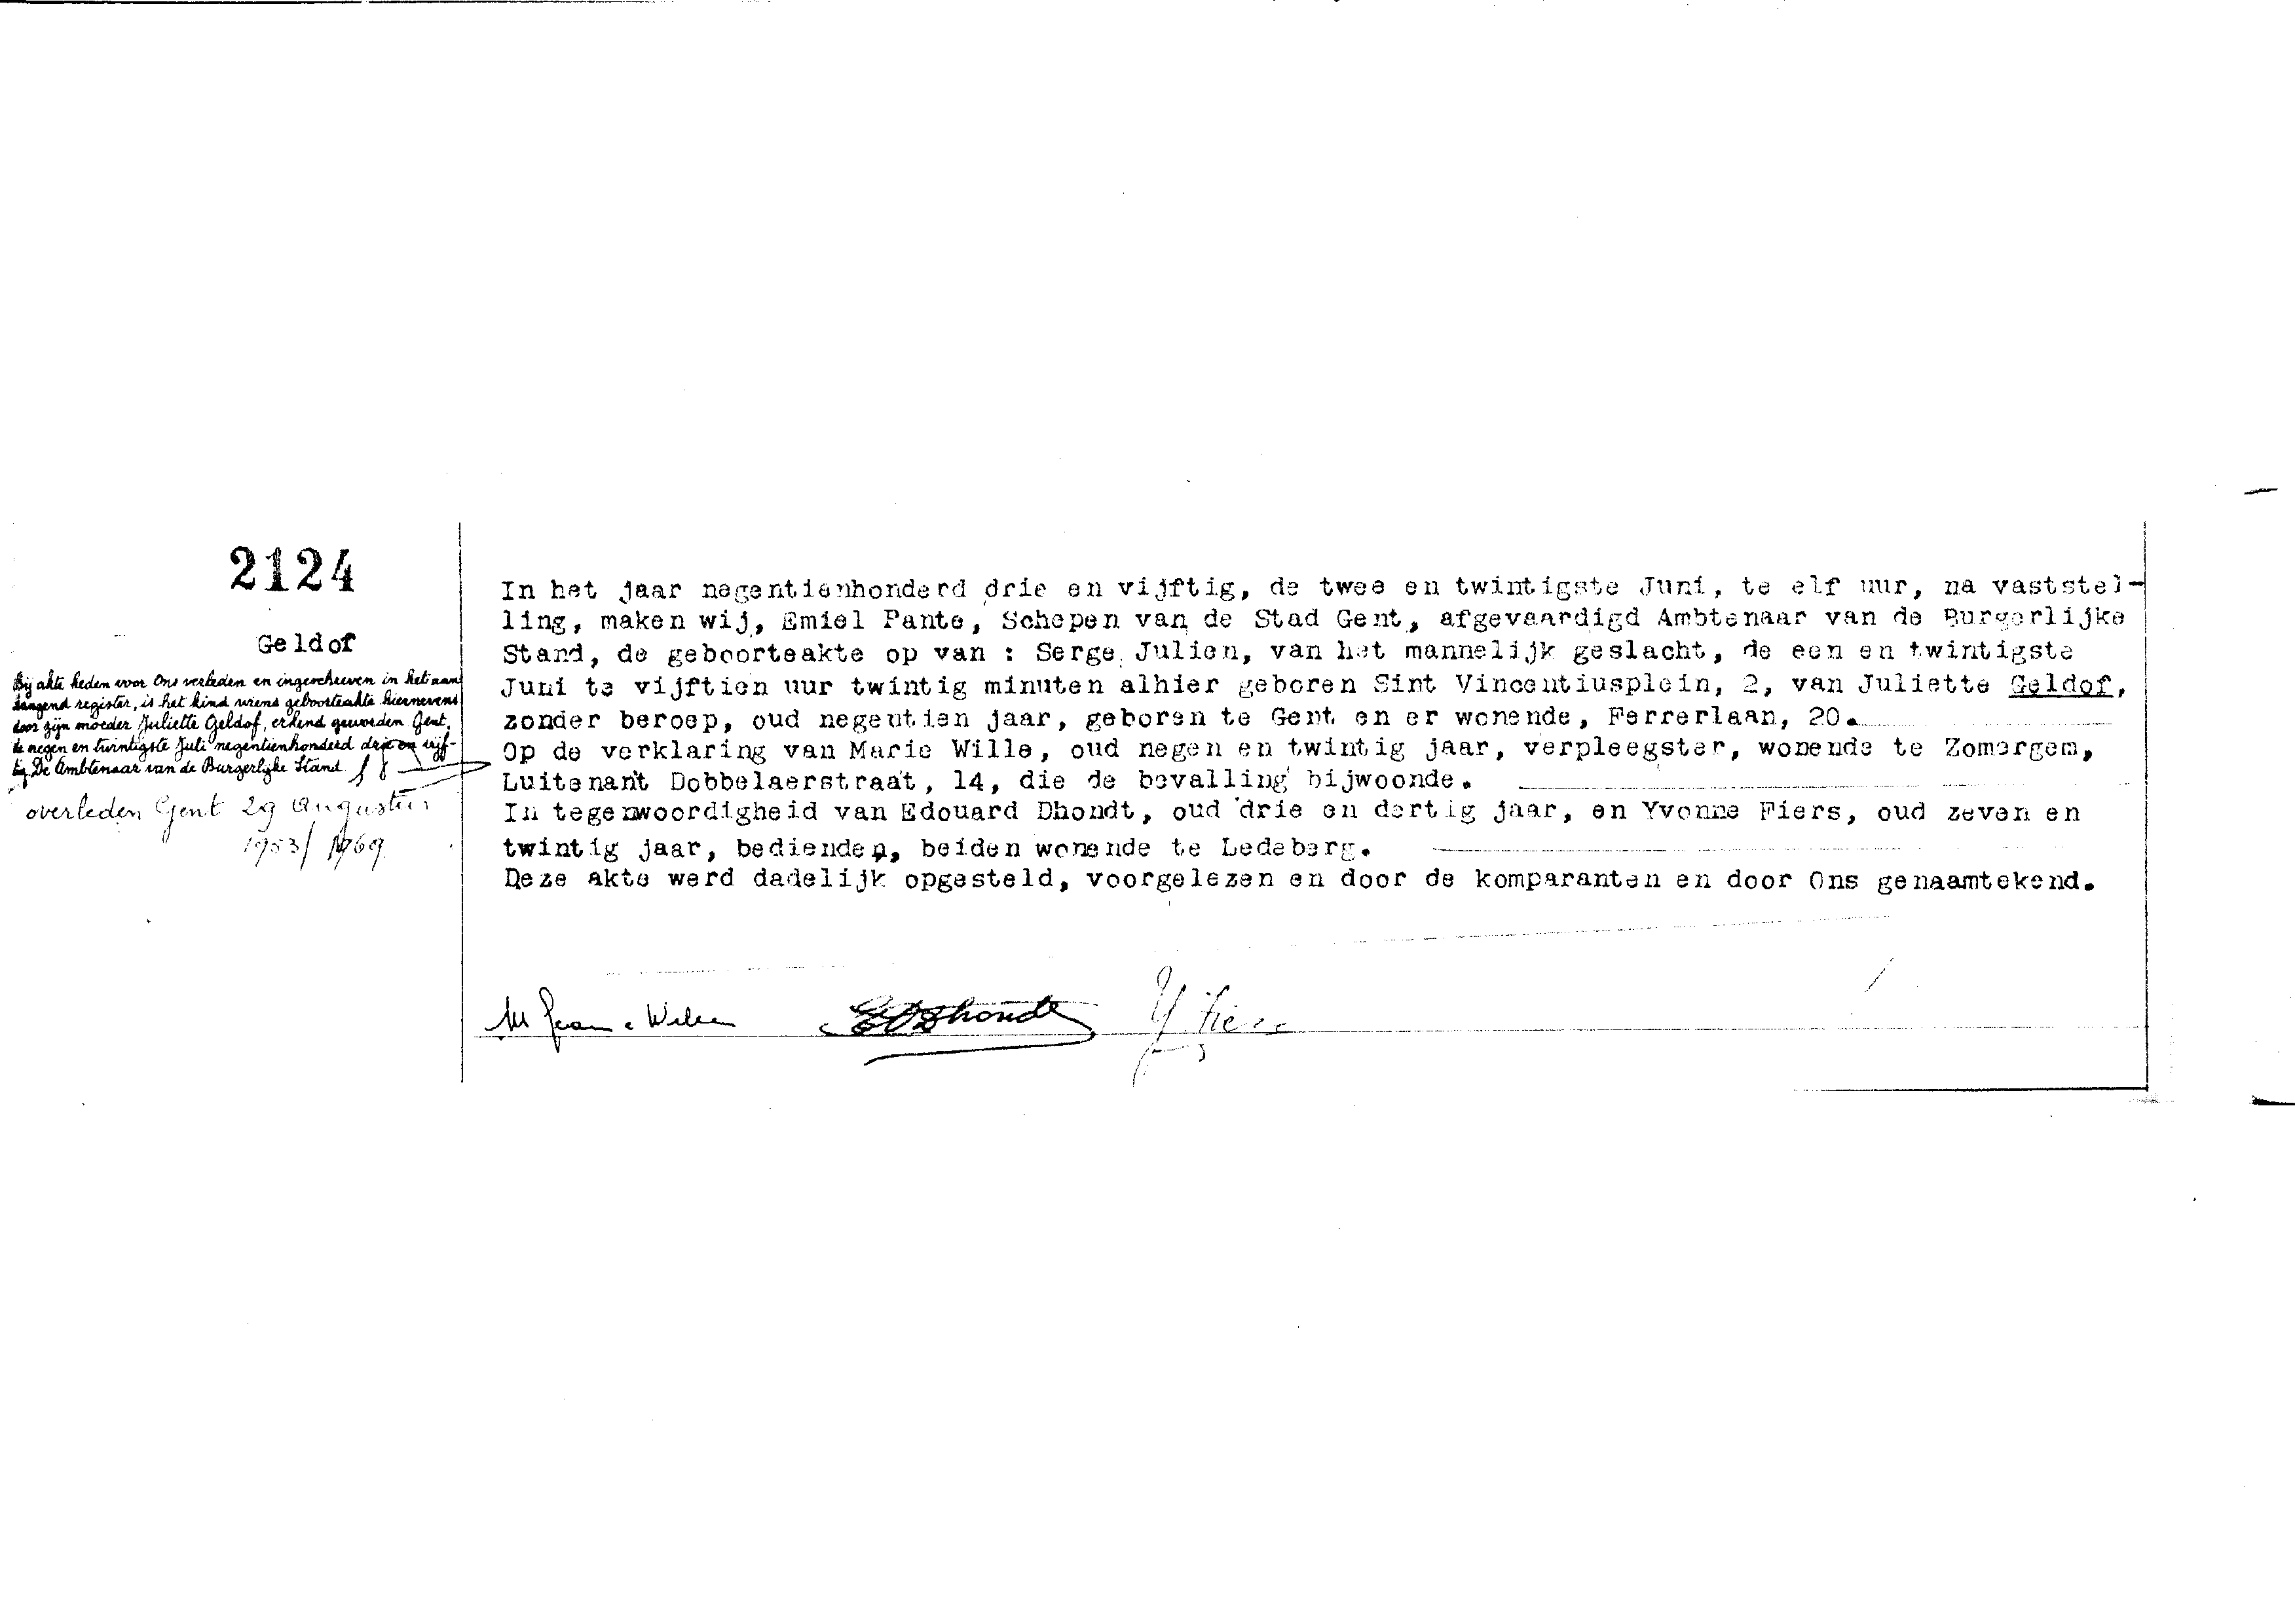 2124
Geldof
Bij akte heden voor Ons verleden en ingeschreven in het aan
hangend register, is het kind wiens geboorteakte hiernevens
door zijn moeder Juliette Geldof, erkend geworden Gent,
de negen en twintigste Juli negentienhonderd drie en vijf-
tig De Ambtenaar van de Burgerlijke Stand
overleden Gent 29 Augustus
1953/ 1969
In het jaar negentienhonderd drie en vijftig, de twee en twintigste Juni, te elf uur, na vaststel-
ling, maken wij, Emiel Pante, Schepen van de Stad Gent, afgevaardigd Ambtenaar van de Burgerlijke
Stand, de geboorteakte op van : Serge Julien, van het mannelijk geslacht, de een en twintigste
Juni te vijftien uur twintig minuten alhier geboren Sint Vincentiusplein, 2, van Juliette Geldof,
zonder beroep, oud negentien jaar, geboren te Gent en er wonende, Ferrerlaan, 20.
Op de verklaring van Marie Wille, oud negen en twintig jaar, verpleegster, wonende te Zomergem,
Luitenant Dobbelaerstraat, 14, die de bevalling bijwoonde.
In tegenwoordigheid van Edouard Dhondt, oud drie en dertig jaar, en Yvonne Fiers, oud zeven en
twintig jaar, bedienden, beiden wonende te Ledeberg.
Deze akte werd dadelijk opgesteld, voorgelezen en door de komparanten en door Ons genaamtekend.
E Dhondt Y Fiers